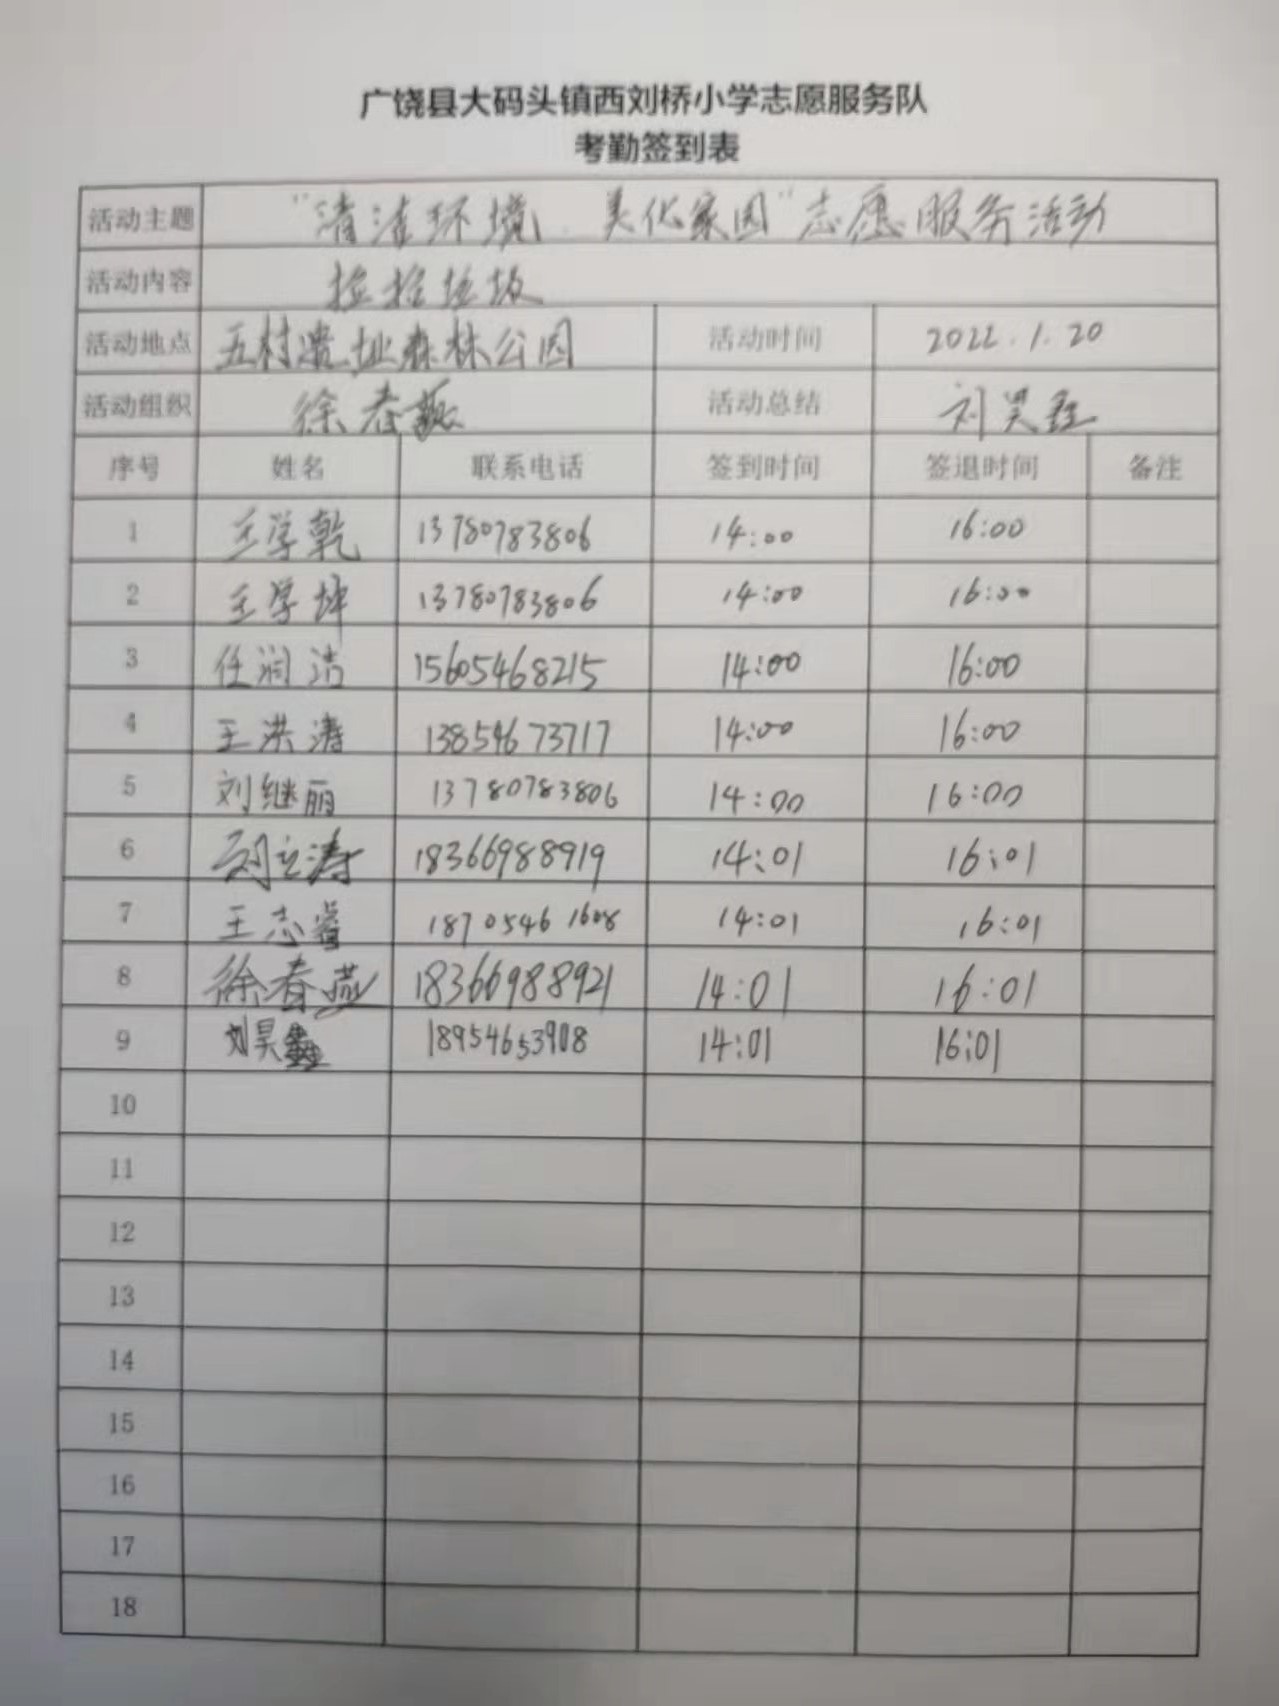 广饶县大码头镇西刘桥小学志愿服务队
考勤签到表
活动主题 "清洁环境 美化家园"志愿服务活动
活动内容 捡拾垃圾
活动地点 五村遗址森林公园 活动时间 2022.1.20
活动组织 徐春燕 活动总结 刘昊
序号 姓名 联系电话 签到时间 签退时间 备注
1 王学乾 13780783806 14:00 16:00
2 王学坤 13780783806 14:00 16:00
3 任润洁 15605468215 14:00 16:00
4 王洪涛 13854673717 14:00 16:00
5 刘继丽 13780783806 14:00 16:00
6 刘立涛 18366988919 14:01 16:01
7 王志睿 18705461608 14:01 16:01
8 徐春燕 18366988921 14:01 16:01
9 刘昊 18954653908 14:01 16:01
10
11
12
13
14
15
16
17
18